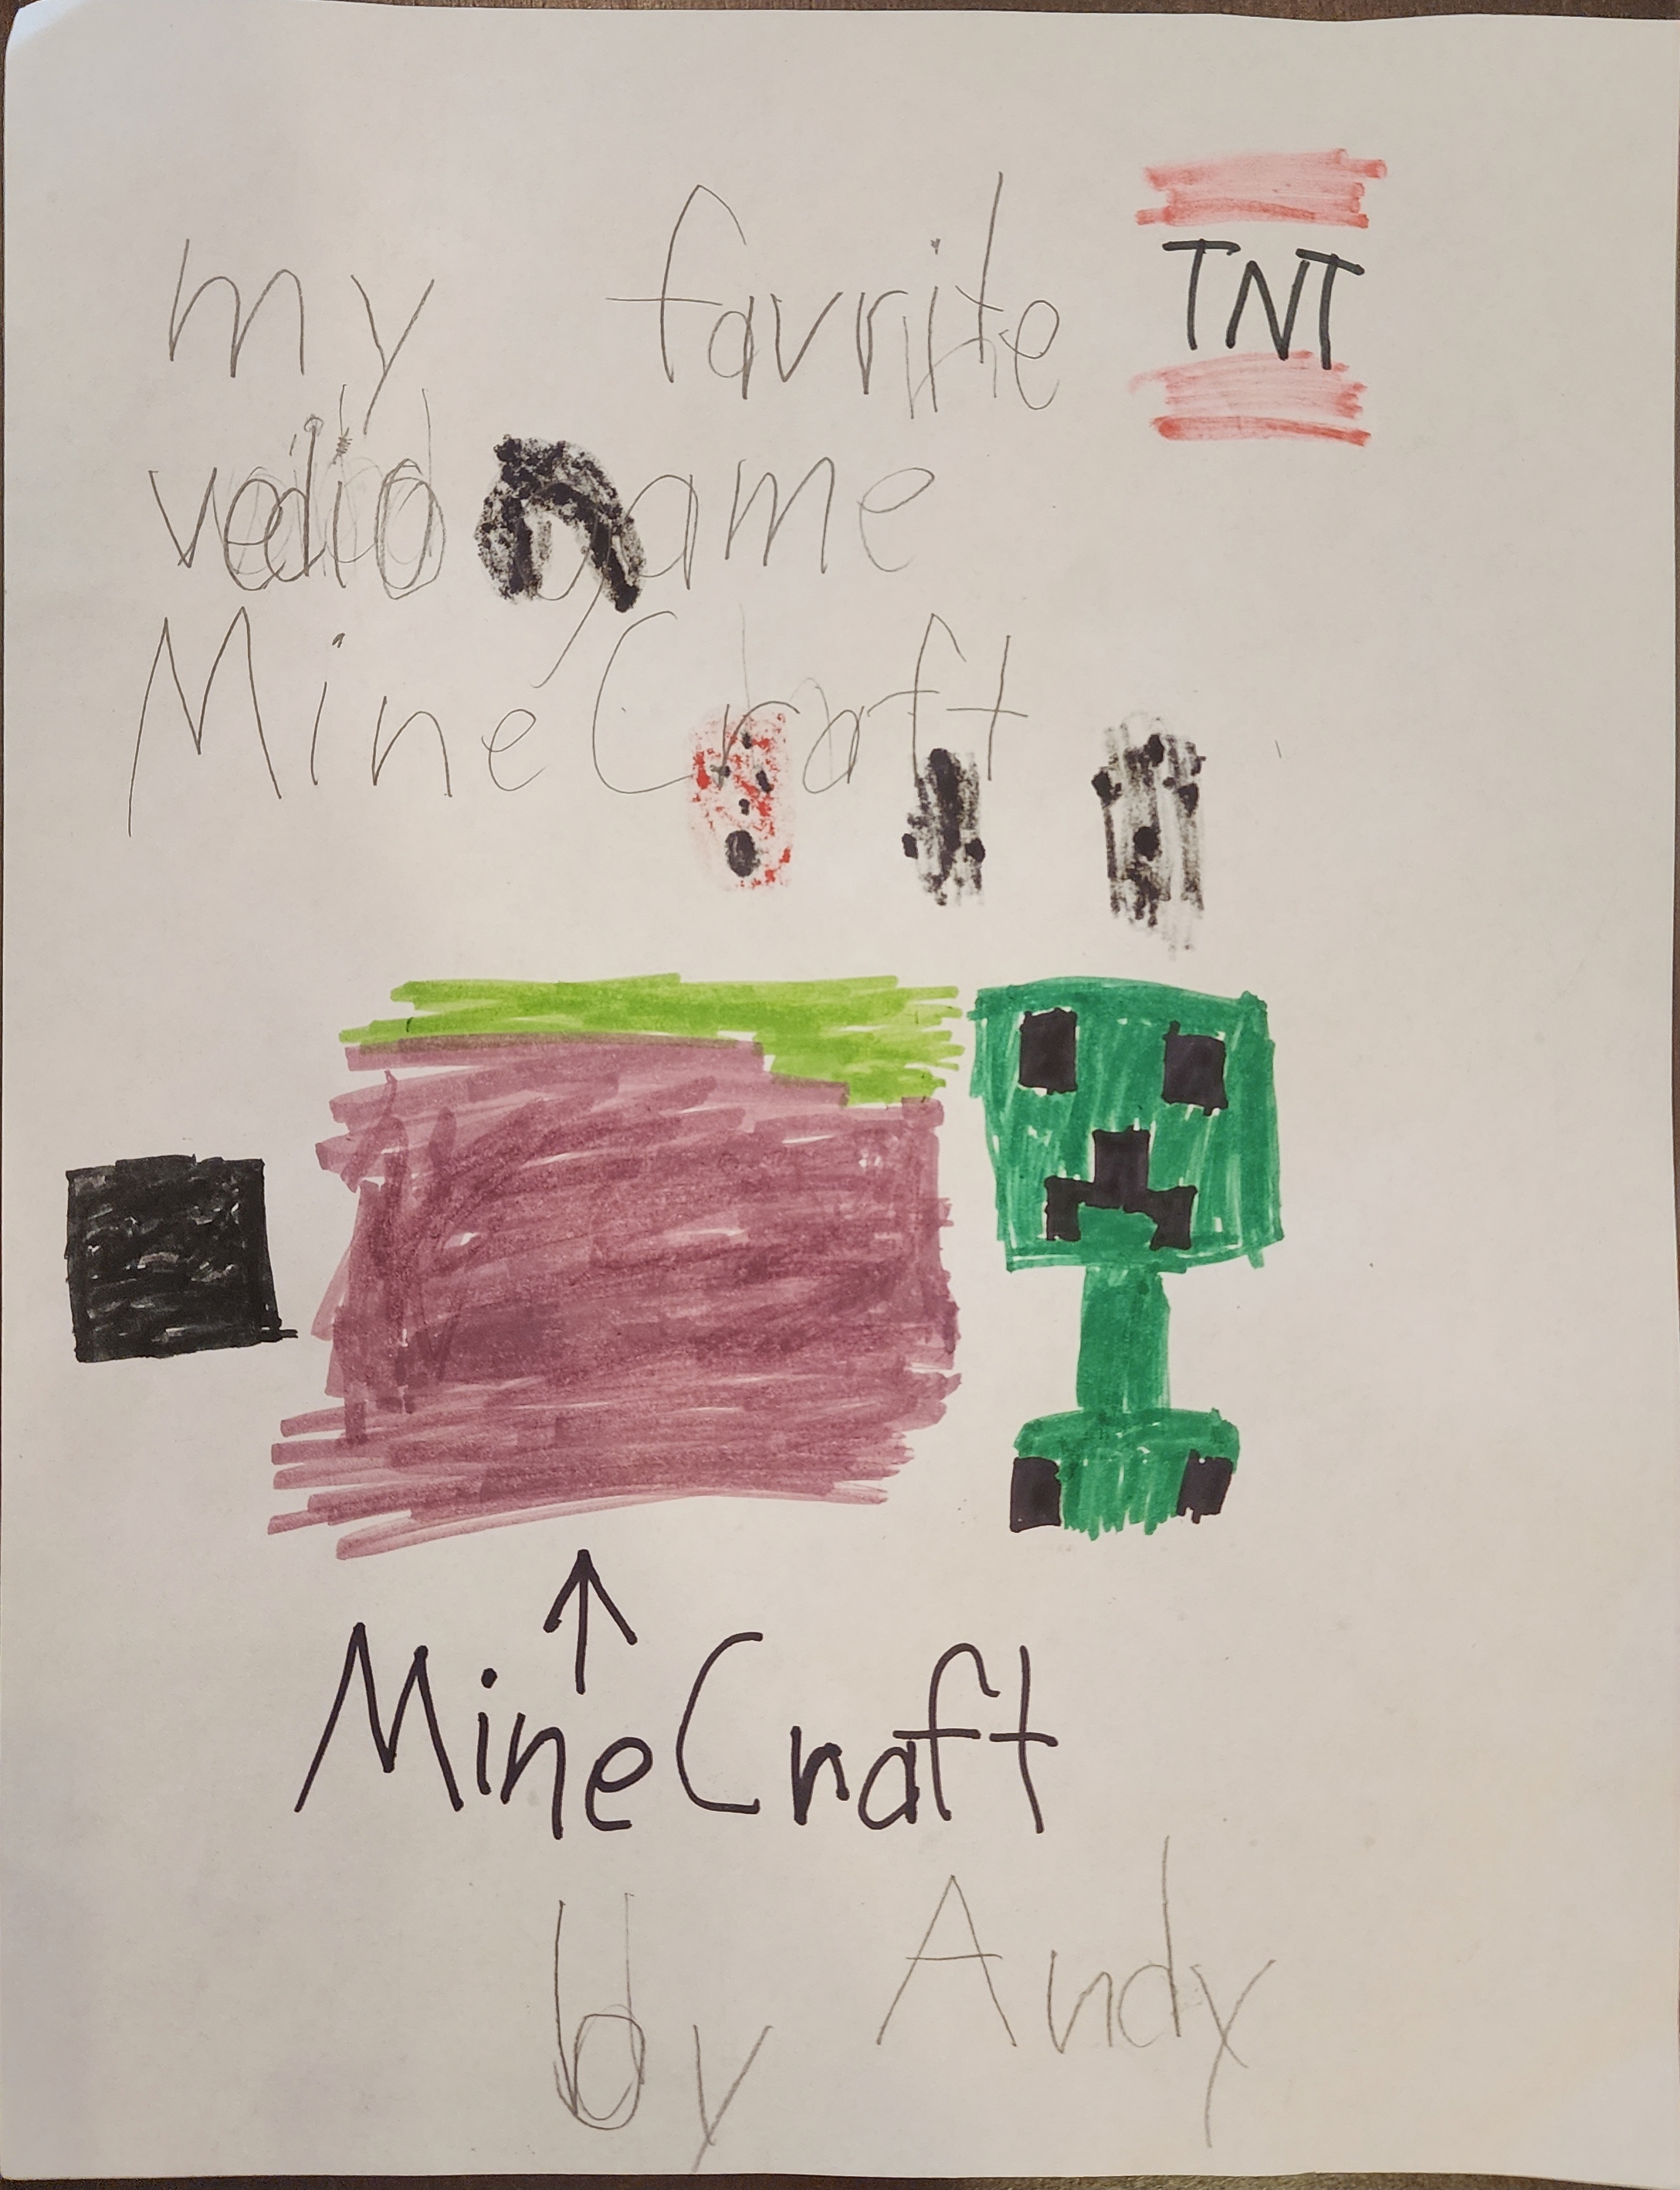 my favrite
TNT
vedio game
MineCraft
MineCraft
by Andy